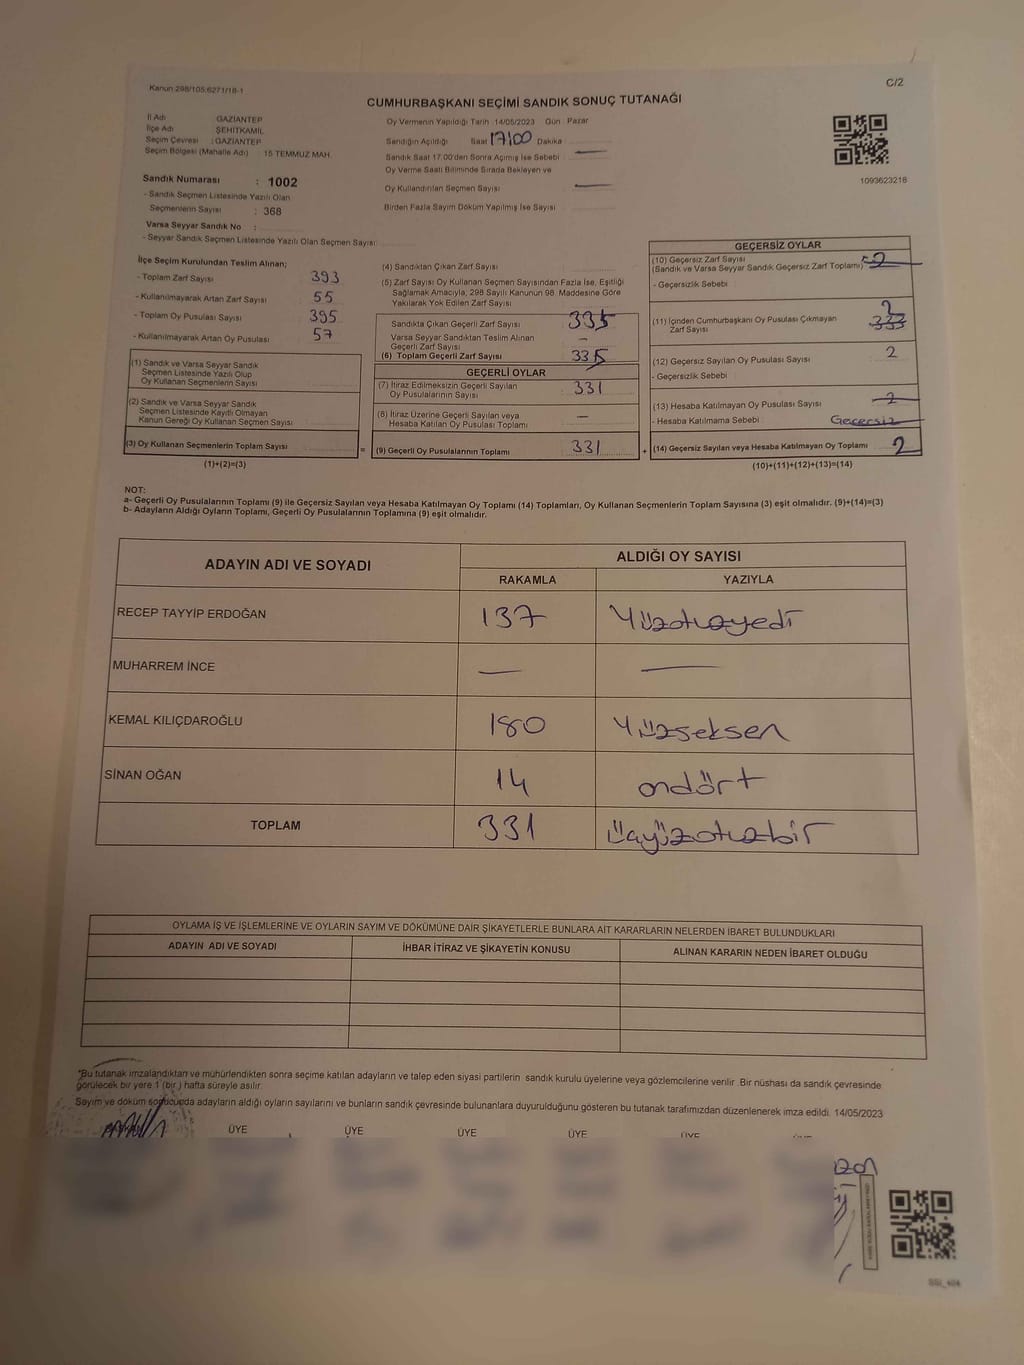 Kanun 298/105;6271/18-1
C/2
CUMHURBAŞKANI SEÇİMİ SANDIK SONUÇ TUTANAĞI
İl Adı GAZİANTEP
İlçe Adı ŞEHİTKAMİL
Seçim Çevresi : GAZİANTEP
Seçim Bölgesi (Mahalle Adı) : 15 TEMMUZ MAH.
Sandık Numarası : 1002
- Sandık Seçmen Listesinde Yazılı Olan
Seçmenlerin Sayısı : 368
Varsa Seyyar Sandık No :
- Seyyar Sandık Seçmen Listesinde Yazılı Olan Seçmen Sayısı:
Oy Vermenin Yapıldığı Tarih :14/05/2023 Gün : Pazar
Sandığın Açıldığı Saat 17:00 Dakika
Sandık Saat 17.00'den Sonra Açımış İse Sebebi : —
Oy Verme Saati Bitiminde Sırada Bekleyen ve
Oy Kullandırılan Seçmen Sayısı —
Birden Fazla Sayım Döküm Yapılmış İse Sayısı
1093623218
İlçe Seçim Kurulundan Teslim Alınan;
- Toplam Zarf Sayısı 393
- Kullanılmayarak Artan Zarf Sayısı 55
- Toplam Oy Pusulası Sayısı 395
- Kullanılmayarak Artan Oy Pusulası 57
(1) Sandık ve Varsa Seyyar Sandık
Seçmen Listesinde Yazılı Olup
Oy Kullanan Seçmenlerin Sayısı
(2) Sandık ve Varsa Seyyar Sandık
Seçmen Listesinde Kayıtlı Olmayan
Kanun Gereği Oy Kullanan Seçmen Sayısı
(3) Oy Kullanan Seçmenlerin Toplam Sayısı =
(1)+(2)=(3)
(4) Sandıktan Çıkan Zarf Sayısı
(5) Zarf Sayısı Oy Kullanan Seçmen Sayısından Fazla İse, Eşitliği
Sağlamak Amacıyla, 298 Sayılı Kanunun 98. Maddesine Göre
Yakılarak Yok Edilen Zarf Sayısı
Sandıkta Çıkan Geçerli Zarf Sayısı 335
Varsa Seyyar Sandıktan Teslim Alınan
Geçerli Zarf Sayısı —
(6) Toplam Geçerli Zarf Sayısı 335
GEÇERLİ OYLAR
(7) İtiraz Edilmeksizin Geçerli Sayılan
Oy Pusulalarının Sayısı 331
(8) İtiraz Üzerine Geçerli Sayılan veya
Hesaba Katılan Oy Pusulası Toplamı —
(9) Geçerli Oy Pusulalarının Toplamı 331 +
GEÇERSİZ OYLAR
(10) Geçersiz Zarf Sayısı
(Sandık ve Varsa Seyyar Sandık Geçersiz Zarf Toplamı) 2
- Geçersizlik Sebebi
(11) İçinden Cumhurbaşkanı Oy Pusulası Çıkmayan 2
Zarf Sayısı 333
(12) Geçersiz Sayılan Oy Pusulası Sayısı 2
- Geçersizlik Sebebi
(13) Hesaba Katılmayan Oy Pusulası Sayısı 2
- Hesaba Katılmama Sebebi Geçersiz
(14) Geçersiz Sayılan veya Hesaba Katılmayan Oy Toplamı 2
(10)+(11)+(12)+(13)=(14)
NOT:
a- Geçerli Oy Pusulalarının Toplamı (9) ile Geçersiz Sayılan veya Hesaba Katılmayan Oy Toplamı (14) Toplamları, Oy Kullanan Seçmenlerin Toplam Sayısına (3) eşit olmalıdır. (9)+(14)=(3)
b- Adayların Aldığı Oyların Toplamı, Geçerli Oy Pusulalarının Toplamına (9) eşit olmalıdır.
ADAYIN ADI VE SOYADI ALDIĞI OY SAYISI
RAKAMLA YAZIYLA
RECEP TAYYİP ERDOĞAN 137 Yüzotuzyedi
MUHARREM İNCE — —
KEMAL KILIÇDAROĞLU 180 Yüzseksen
SİNAN OĞAN 14 ondört
TOPLAM 331 üçyüzotuzbir
OYLAMA İŞ VE İŞLEMLERİNE VE OYLARIN SAYIM VE DÖKÜMÜNE DAİR ŞİKAYETLERLE BUNLARA AİT KARARLARIN NELERDEN İBARET BULUNDUKLARI
ADAYIN ADI VE SOYADI İHBAR İTİRAZ VE ŞİKAYETİN KONUSU ALINAN KARARIN NEDEN İBARET OLDUĞU
*Bu tutanak imzalandıktan ve mühürlendikten sonra seçime katılan adayların ve talep eden siyasi partilerin sandık kurulu üyelerine veya gözlemcilerine verilir .Bir nüshası da sandık çevresinde
görülecek bir yere 1 (bir.) hafta süreyle asılır.
Sayım ve döküm sonucunda adayların aldığı oyların sayılarını ve bunların sandık çevresinde bulunanlara duyurulduğunu gösteren bu tutanak tarafımızdan düzenlenerek imza edildi. 14/05/2023
BAŞKAN ÜYE ÜYE ÜYE ÜYE ÜYE